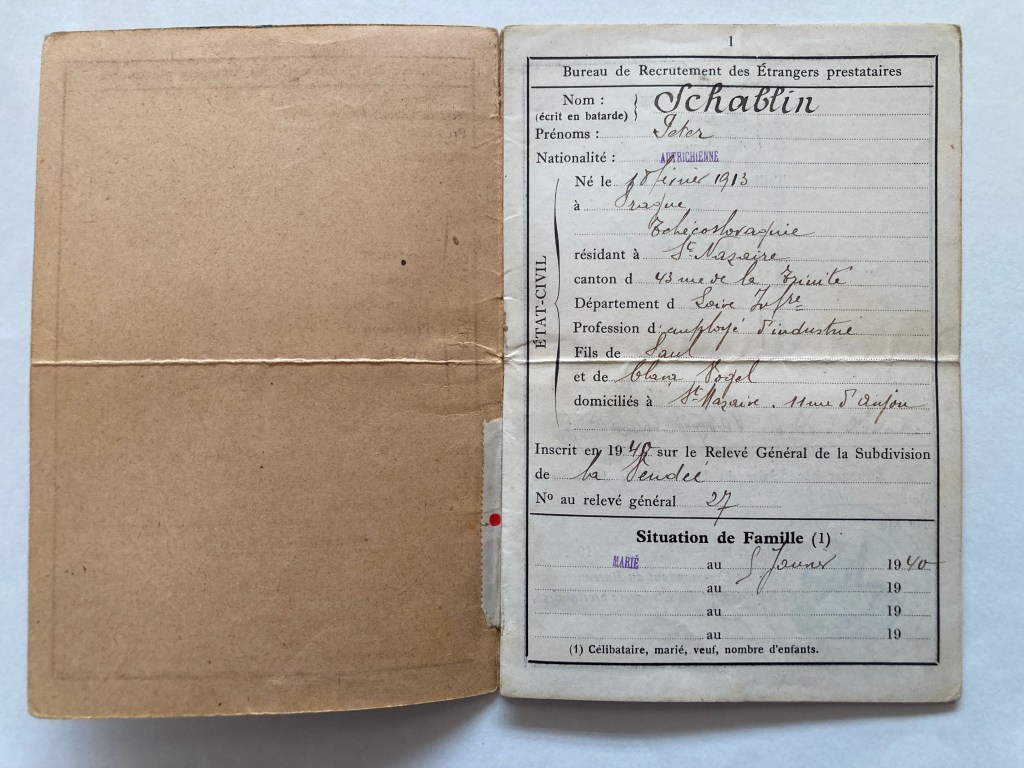 1
Bureau de Recrutement des Étrangers prestataires
Nom : Schablin
(écrit en batarde)
Prénoms : Peter
Nationalité : AUTRICHIENNE
ÉTAT-CIVIL
Né le février 1913
à Prague
Tchécoslovaquie
résidant à St Nazaire
canton d 43 rue de la Trinité
Département d Loire Infre
Profession d'employé d'industrie
Fils de
et de Clara Vogel
domiciliés à St Nazaire. 11 rue d'Anjou
Inscrit en 1940 sur le Relevé Général de la Subdivision
de la Vendée
No au relevé général 27
Situation de Famille (1)
MARIÉ au 5 Janvier 1940
au 19
au 19
au 19
(1) Célibataire, marié, veuf, nombre d'enfants.